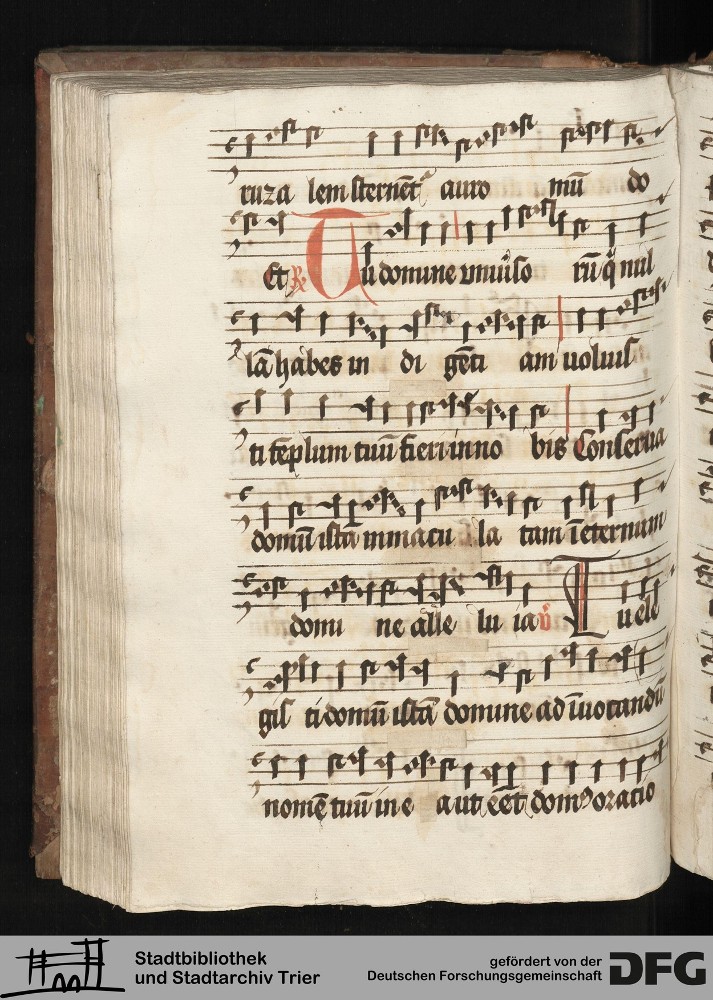 ruza lem sternēt᷑ auro mū do
Et ℟ Tu domine vniūso rū q̄ nul
lā habes in di gēti am uoluis
ti tēplum tuū fieri in no bis Conserua
domū istā inmacu la tam ī eternum
domi ne alle lu ia v̄ Tu ele
gis ti domū istā domine ad īuocandū
nomē tuū in e a ut eēt domꝰ oracio
Stadtbibliothek
und Stadtarchiv Trier
gefördert von der
Deutschen Forschungsgemeinschaft
DFG